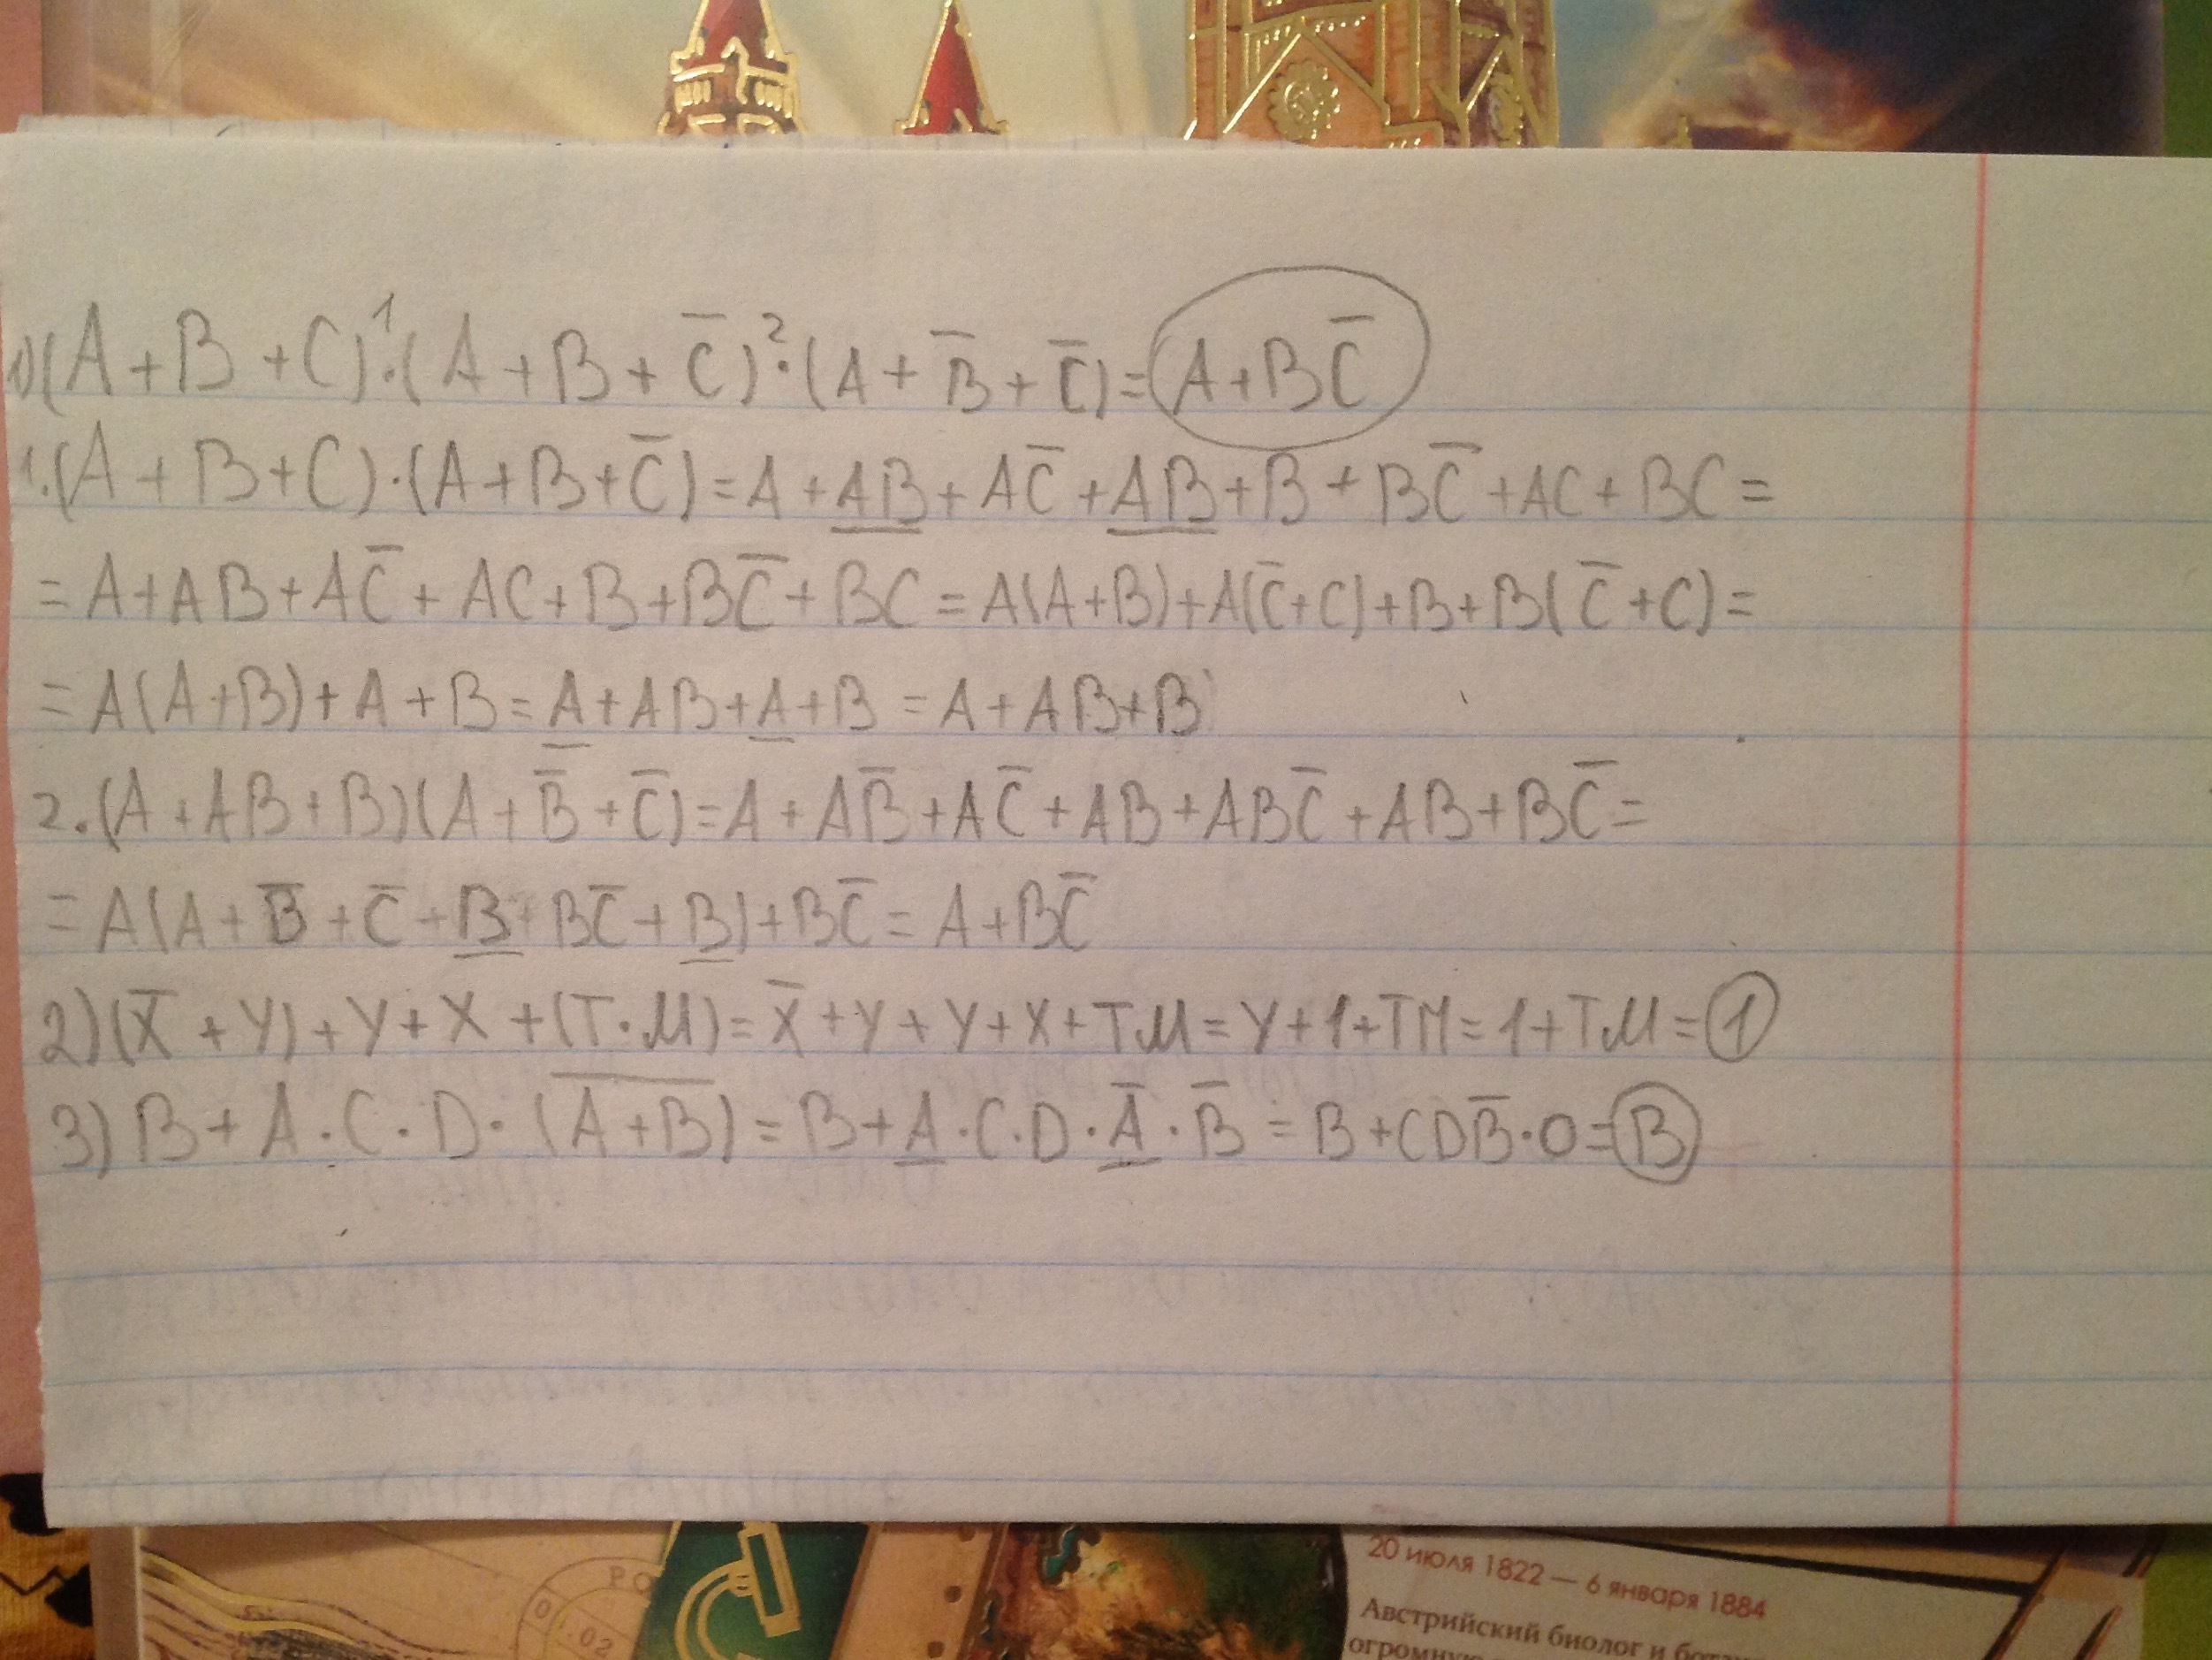 1) (A+B+C)¹·(A+B+C̅)²·(A+B̅+C̅)=A+BC̅
1.(A+B+C)·(A+B+C̅)=A+AB+AC̅+AB+B+BC̅+AC+BC=
=A+AB+AC̅+AC+B+BC̅+BC=A(A+B)+A(C̅+C)+B+B(C̅+C)=
=A(A+B)+A+B=A+AB+A+B=A+AB+B
2.(A+AB+B)(A+B̅+C̅)=A+AB̅+AC̅+AB+ABC̅+AB+BC̅=
=A(A+B̅+C̅+B+BC̅+B)+BC̅=A+BC̅
2)(X̅+Y)+Y+X+(T·M)=X̅+Y+Y+X+TM=Y+1+TM=1+TM=1
3) B+A·C·D·(A̅+̅B̅)=B+A·C·D·A̅·B̅=B+CDB̅·0=B
РО
02
20 июля 1822 — 6 января 1884
Австрийский биолог и